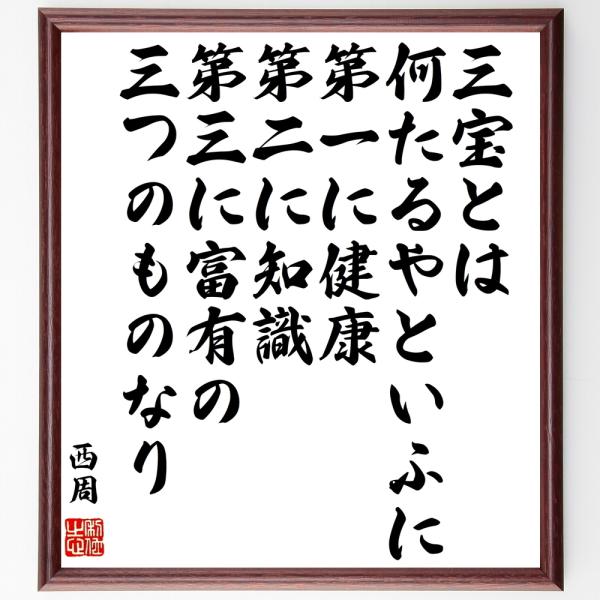 三宝とは
何たるやといふに
第一に健康
第二に知識
第三に富有の
三つのものなり
西周